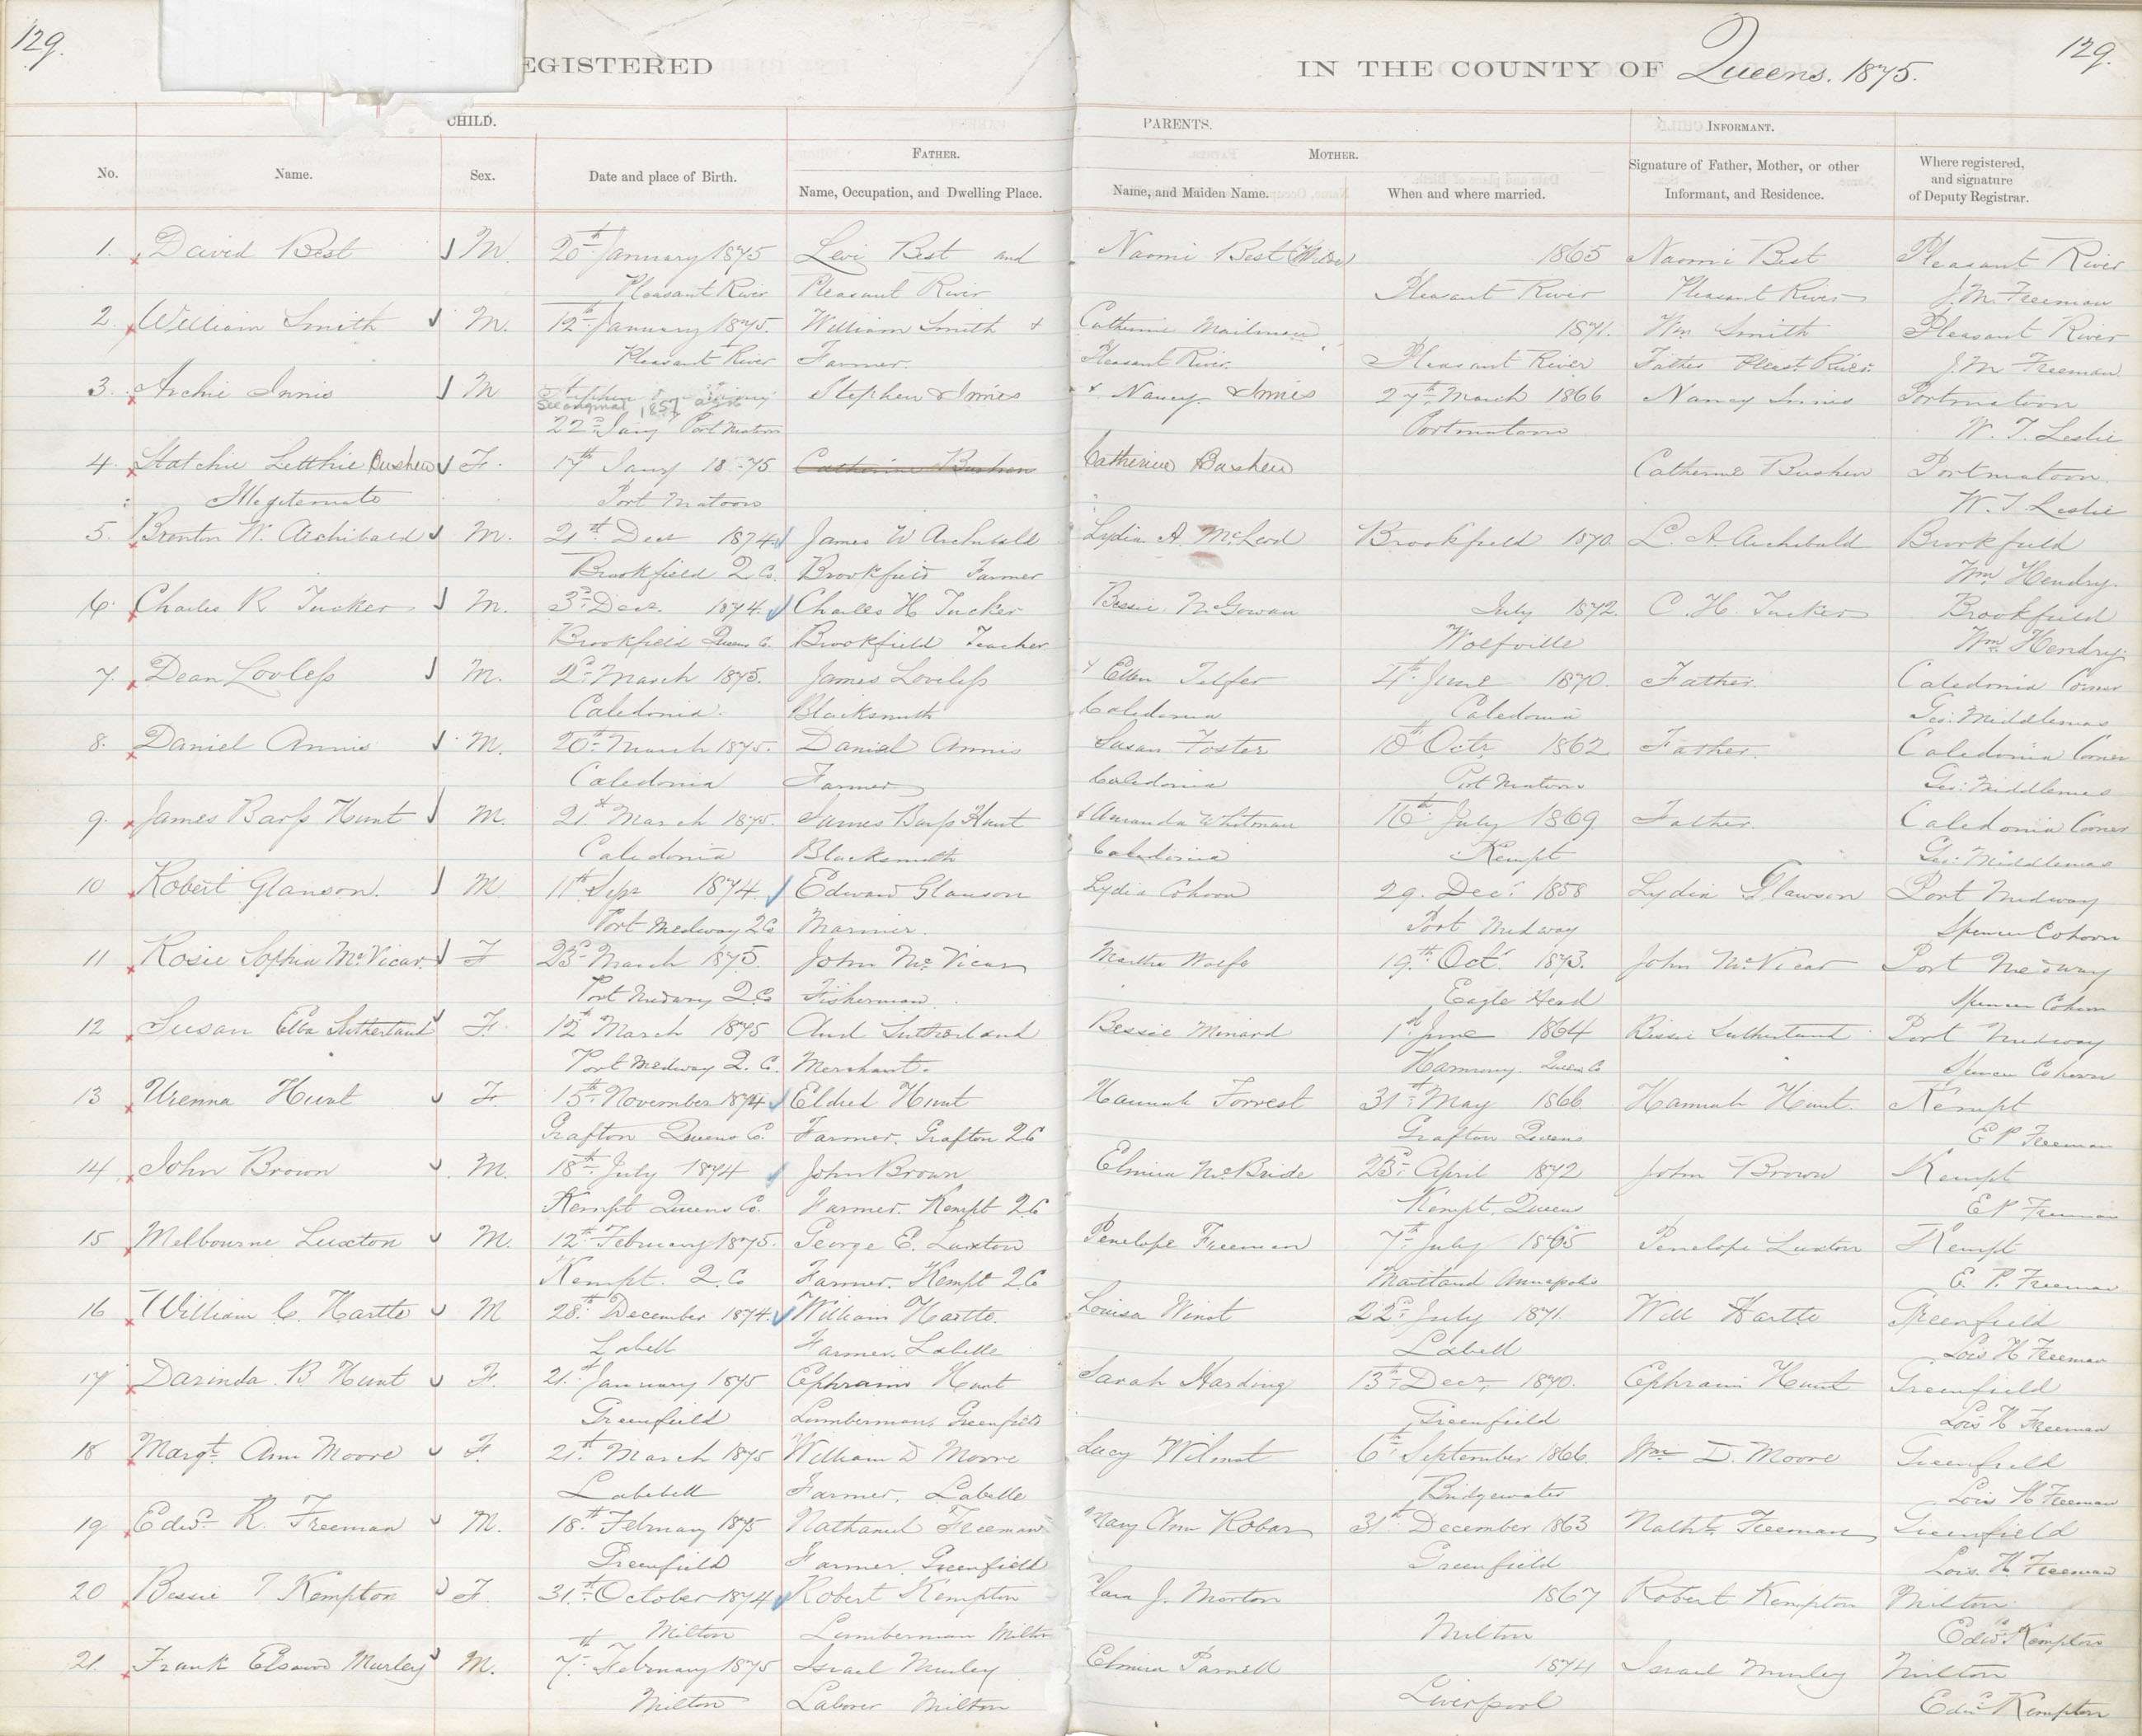 129.
EGISTERED
IN THE COUNTY OF Queens. 1875.
129.
CHILD.
PARENTS.
INFORMANT.
No.
Name.
Sex.
Date and place of Birth.
FATHER.
Name, Occupation, and Dwelling Place.
MOTHER.
Name, and Maiden Name.
When and where married.
Signature of Father, Mother, or other
Informant, and Residence.
Where registered,
and signature
of Deputy Registrar.
1. David Best M. 20th January 1875 Levi Best and Naomi Best 1865 Naomi Best Pleasant River
Pleasant River Pleasant River Pleasant River Pleasant River J. M. Freeman
2. William Smith M. 12th January 1875. William Smith + Catherine Mailman 1871. Wm Smith Pleasant River
Pleasant River Farmer. Pleasant River. Pleasant River Father Pleast River J. M Freeman
3. Archie Innis M Stephen & Innies & Nancy & Innies 27th March 1866 Nancy Innis Portmatoon
See original 1857
22d Jany Port Matoon Portmatoon W. T. Leslie
4. Statchie Letthie Bushen F. 17th Jany 1875 Catherine Bushen Catherine Bushen Catherine Bushen Portmatoon.
Illegitemate Port Matoon W. T. Leslie
5. Brenton W. Archibald M. 21st Decr 1874. James W Archibald Lydia A. McLeod Brookfield 1870. L. A. Archibald Brookfield
Brookfield Q Co. Brookfield Farmer Wm Hendry.
6. Charles R Tucker M. 3d Decr. 1874. Charles H Tucker Bessie McGowan July 1872. C. H. Tucker Brookfield
Brookfield Queens C. Brookfield Teacher Wolfville Wm Hendry.
7. Dean Lovless M. 2d March 1875. James Loveless & Ellen Telfer 4th June 1870. Father. Caledonia Corner
Caledonia. Blacksmith Caledonia Caledonia Geo: Middlemas
8. Daniel Annis M. 20th March 1875. Daniel Annis Susan Foster 18th Octr 1862 Father. Caledonia Corner
Caledonia Farmer Caledonia Port Matoon Geo: Middlemas
9. James Barss Hunt M. 21st March 1875. James Barss Hunt & Amanda Whitman 16th July 1869 Father. Caledonia Corner
Caledonia Blacksmith Caledonia Kempt Geo: Middlemas
10 Robert Glanson. M. 11th Sepr 1874. Edward Glauson Lydia Cohoon 29. Decr 1858 Lydia Glawson Port Medway
Port Medway Q Co Mariner. Port Medway Spencer Cohoon
11 Rosie Sophia McVicar. F 23d March 1875. John McVicar Martha Wolfe 19th Octr 1873. John McVicar Port Medway
Port Medway Q Co Fisherman. Eagle Head Spencer Cohoon
12 Susan Ella Sutherland F. 12th March 1875 And Sutherland Bessie Minard 1st June 1864 Bessie Sutherland Port Medway
Port Medway Q. C. Merchant. Harmony. Queens Co Spencer Cohoon
13 Urenna Hunt F. 15th November 1874 Eldred Hunt Hannah Forrest 31st May 1866 Hannah Hunt. Kempt
Grafton Queens C. Farmer. Grafton Q C Grafton Queens E P Freeman
14 John Brown M. 18th July 1874 John Brown Elmira McBride 23d April 1872 John Brown Kempt
Kempt Queens Co. Farmer. Kempt Q.C Kempt, Queens E P Freeman
15 Melbourne Luxton M. 12th February 1875. George E. Luxton Penelope Freeman 7th July 1865 Penelope Luxton Kempt
Kempt. Q. Co Farmer. Kempt Q C Maitland Annapolis E. P. Freeman
16 William C. Hartto M 28th December 1874. William Hartto. Louisa Winot 22d July 1871. Will Hartto Greenfield
Labell Farmer. Labelle Labell Lois H Freeman
17 Darinda B Hunt F. 21st January 1875 Ephraim Hunt Sarah Harding 13th Decr. 1870. Ephraim Hunt Greenfield
Greenfield Lumberman, Greenfield Greenfield Lois H Freeman
18 Margt Ann Moore F. 21st March 1875 William D Moore Lucy Wilmot 6th September 1866. Wm D. Moore Greenfield
Labebell Farmer, Labelle Bridgewater Lois H Freeman
19 Edwd R. Freeman M. 18th February 1875 Nathaniel Freeman Mary Ann Kobar 31st December 1863 Nathl. Freeman Greenfield
Greenfield Farmer, Greenfield Greenfield Lois. H Freeman
20 Bessie T Kempton F. 31st October 1874 Robert Kempton Clara J. Morton 1867 Robert Kempton Milton
Milton Lumberman Milton Milton Edwd Kempton
21. Frank Elswood Murley M. 7th February 1875 Israel Murley Elmira Parnell 1874 Israel Murley Milton
Milton Laborer Milton Liverpool Edwd Kempton